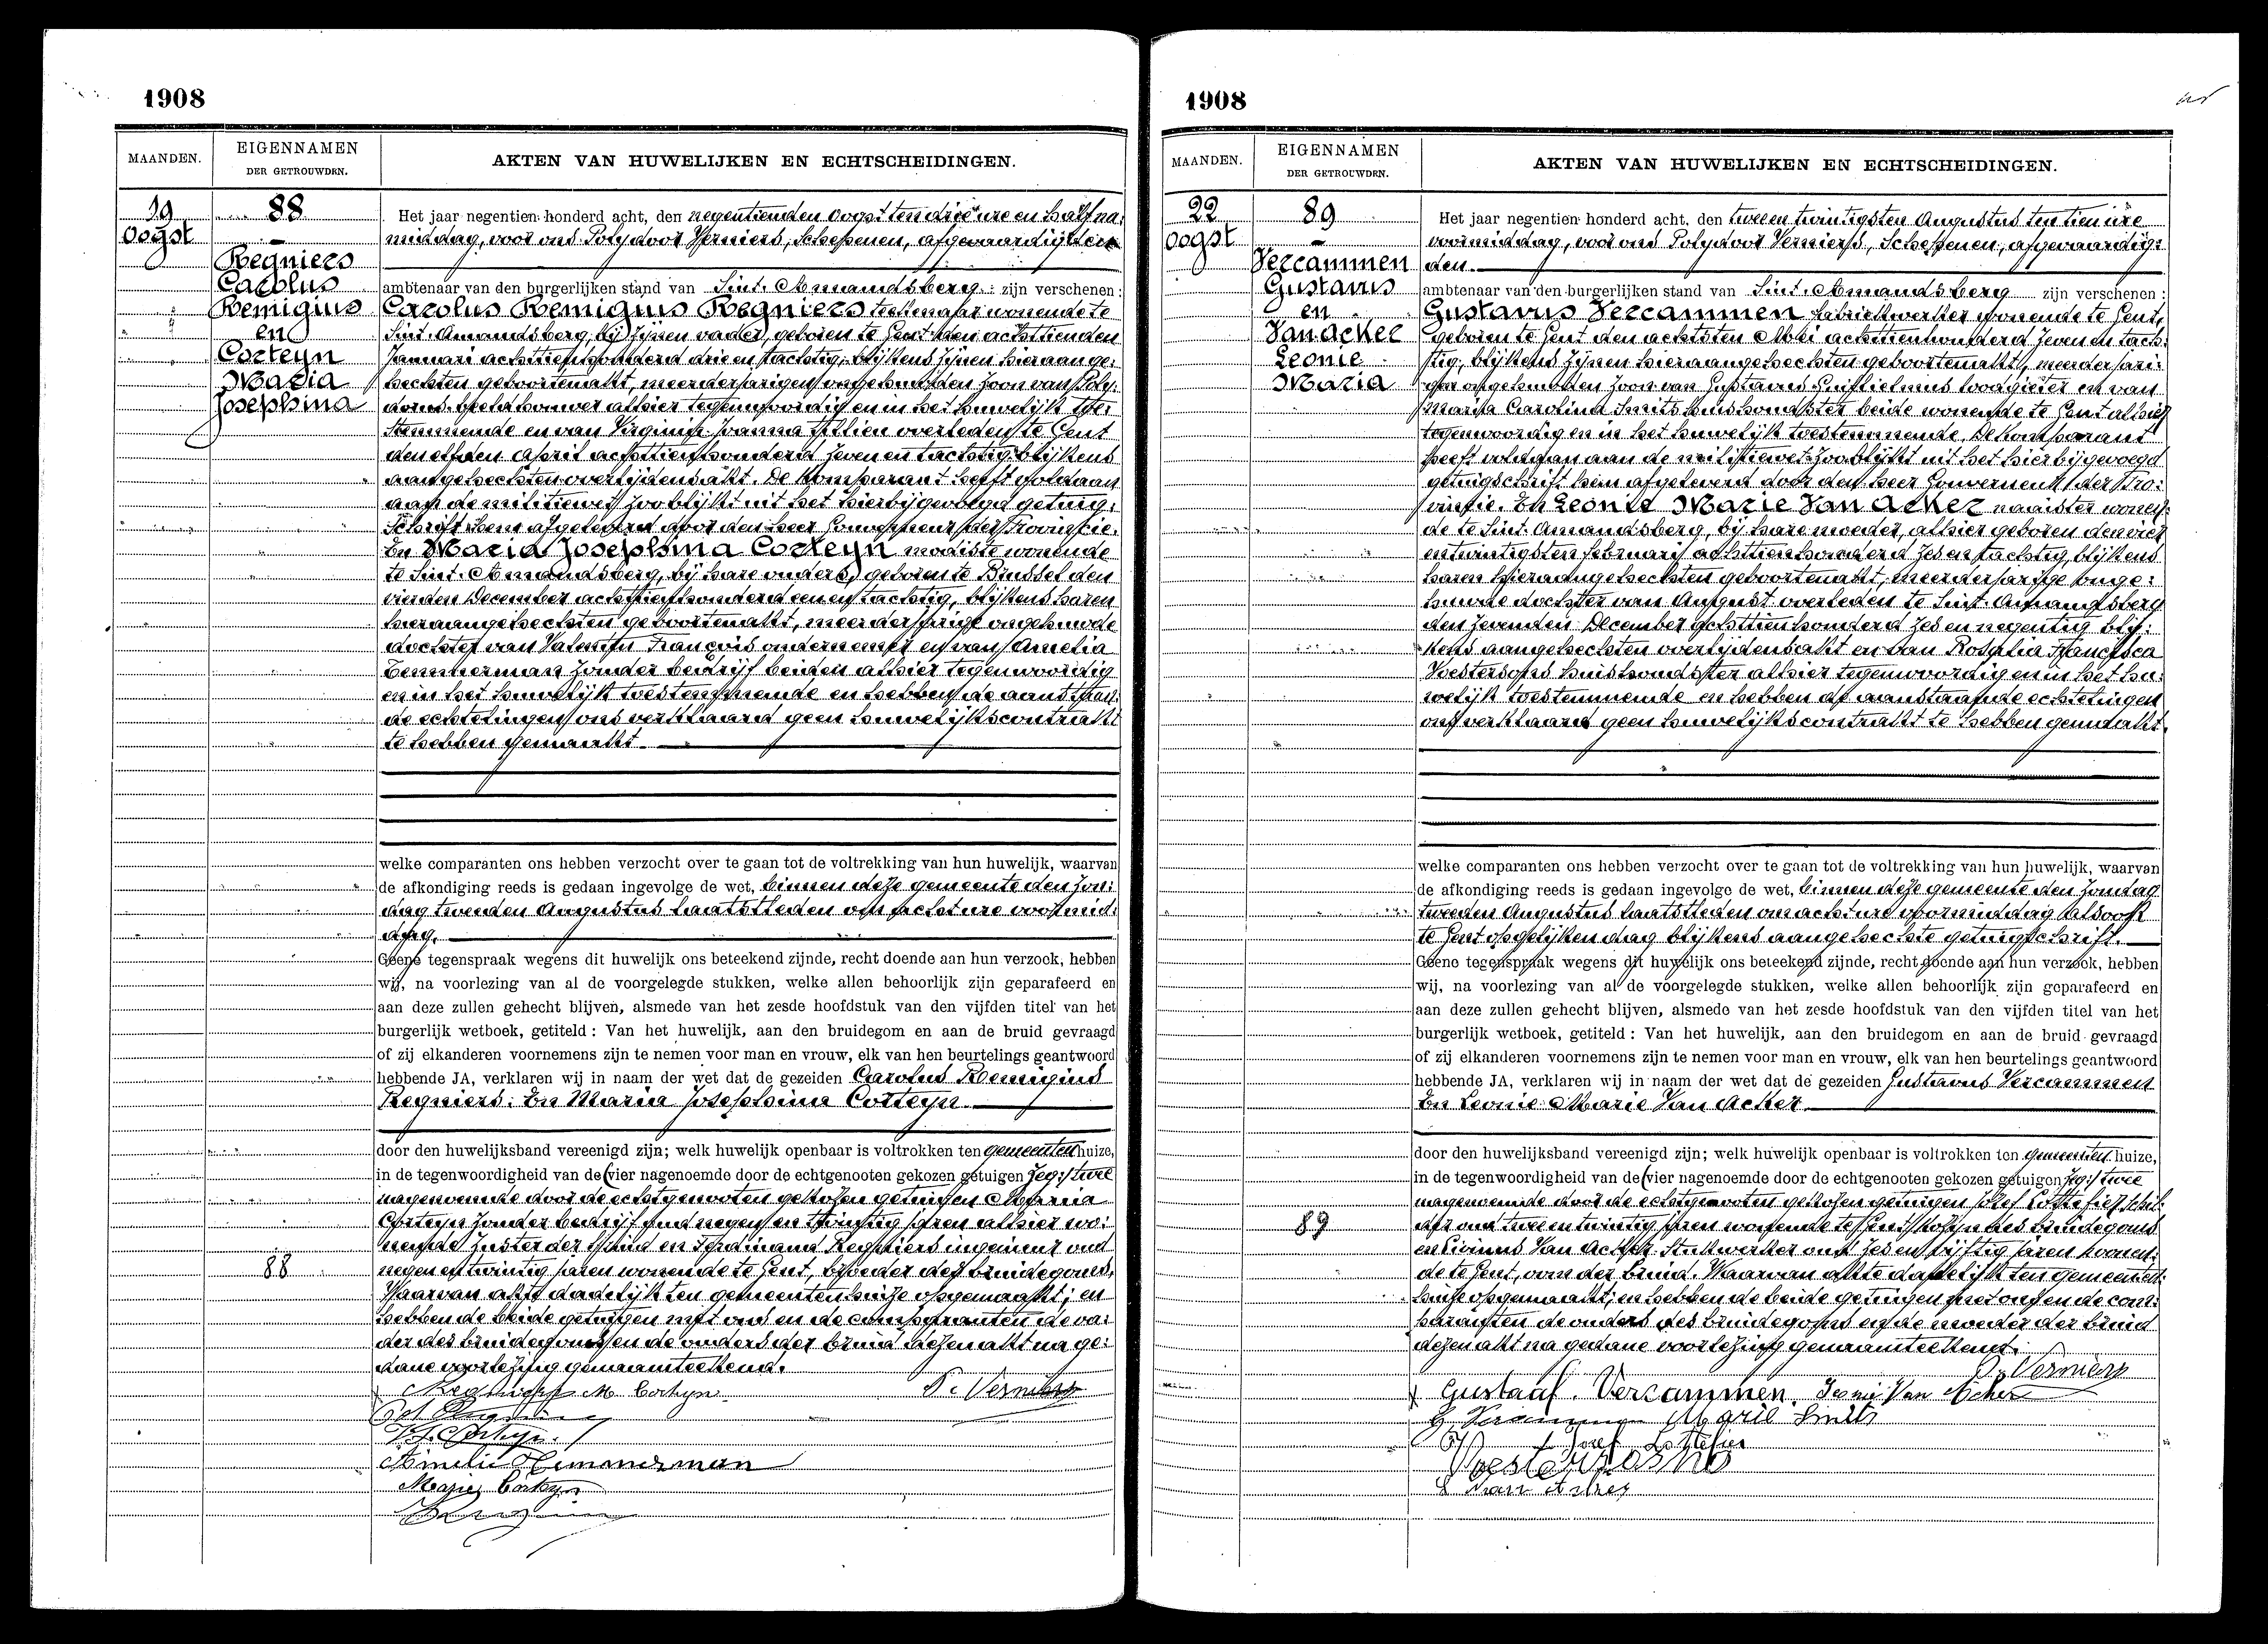 1908
MAANDEN.
EIGENNAMEN
DER GETROUWDEN.
AKTEN VAN HUWELIJKEN EN ECHTSCHEIDINGEN.
19
Oogst
88
Regniers
Carolus
Remigius
en
Corteyn
Maria
Josephina
Het jaar negentien honderd acht, den negentienden oogst ten drie ure en half na:
middag, voor ons Polydoor Verniers, Schepenen, afgevaardigden
ambtenaar van den burgerlijken stand van Sint. Amandsberg zijn verschenen:
Carolus Remigius Regniers teekenaar wonende te
Sint. Amandsberg, bij zijnen vader, geboren te Gent den achttienden
Januari achttienhonderd drie en tachtig, blijkens zijnen hieraange:
hechten geboortenakt, meerderjarigen ongehuwden zoon van Poly:
dorus beeldhouwer alhier tegenwoordig en in het huwelijk toe:
stemmende en van Virginie Joanna overleden te Gent
den elfden april achttienhonderd zeven en tachtig blijkens
aangehechten overlijdensakt. De komparant heeft voldaan
aan de militiewet zoo blijkt uit het hierbijgevoegd getuig:
schrift hem afgeleverd door den heer Gouverneur der Provincie.
En Maria Josephina Corteyn modiste wonende
te Sint. Amandsberg, bij hare ouders, geboren te Brussel den
vierden December achttienhonderd een en tachtig, blijkens haren
hieraangehechten geboortenakt, meerderjarige ongehuwde
dochter van Valentin François ondernemer en van Amelia
Zemmerman zonder bedrijf beiden alhier tegenwoordig
en in het huwelijk toestemmende en hebben de aanstaan:
de echtelingen ons verklaard geen huwelijkscontrakt
te hebben gemaakt.
welke comparanten ons hebben verzocht over te gaan tot de voltrekking van hun huwelijk, waarvan
de afkondiging reeds is gedaan ingevolge de wet, binnen deze gemeente den Zon:
dag tweeden Augustus laatstleden om acht ure voormid:
dag.
Geene tegenspraak wegens dit huwelijk ons beteekend zijnde, recht doende aan hun verzoek, hebben
wij, na voorlezing van al de voorgelegde stukken, welke allen behoorlijk zijn geparafeerd en
aan deze zullen gehecht blijven, alsmede van het zesde hoofdstuk van den vijfden titel van het
burgerlijk wetboek, getiteld: Van het huwelijk, aan den bruidegom en aan de bruid gevraagd
of zij elkanderen voornemens zijn te nemen voor man en vrouw, elk van hen beurtelings geantwoord
hebbende JA, verklaren wij in naam der wet dat de gezeiden Carolus Remigius
Regniers: En Maria Josephina Corteyn
door den huwelijksband vereenigd zijn; welk huwelijk openbaar is voltrokken ten gemeenten huize,
in de tegenwoordigheid van de (vier nagenoemde door de echtgenooten gekozen getuigen zeg:) twee
nagenoemde door de echtgenooten gekozen getuigen Maria
Corteyn zonder bedrijf oud negen en twintig jaren alhier wo:
nende zuster der bruid en Ferdinand Regniers ingenieur oud
88
negen en twintig jaren wonende te Gent, broeder des bruidegoms.
Waarvan akte dadelijk ten gemeentenhuize opgemaakt; en
hebben de beide getuigen met ons en de comparanten de va:
der des bruidegoms en de ouders der bruid dezen akt na ge:
dane voorlezing genaamteekend.
M. Corteyn P. Verniers
Amelie Hemanerman
Marie Corteyn
1908
MAANDEN.
EIGENNAMEN
DER GETROUWDEN.
AKTEN VAN HUWELIJKEN EN ECHTSCHEIDINGEN.
22
oogst
89
Vercammen
Gustavus
en
Van Acker
Leonie
Maria
Het jaar negentien honderd acht, den twee en twintigsten Augustus ten tien ure
voormiddag, voor ons Polydoor Verniers, Schepenen, afgevaardig:
den
ambtenaar van den burgerlijken stand van Sint. Amandsberg zijn verschenen:
Gustavus Vercammen fabriekwerker wonende te Gent,
geboren te Gent den achtsten Mei achttienhonderd zeven en tach:
tig, blijkens zijnen hieraangehechten geboortenakt, meerderjari:
gen ongehuwden zoon van Gustavus Guilielmus loodgieter en van
Maria Carolina Smits huishoudster beide wonende te Gent alhier
tegenwoordig en in het huwelijk toestemmende. De Komparant
heeft voldaan aan de militiewet zoo blijkt uit het hierbijgevoegd
getuigschrift hem afgeleverd door den heer Gouverneur der Pro:
vincie. En Leonie Marie Van Acker naaister wonen:
de te Sint. Amandsberg, bij hare moeder, alhier geboren den vier
en twintigsten februari achttienhonderd zes en tachtig, blijkens
haren hieraangehechten geboortenakt, meerderjarige onge:
huwde dochter van August overleden te Sint. Amandsberg
den zevenden December achttienhonderd zes en negentig blij:
kens aangehechten overlijdensakt en van Rosalia Francisca
Voestersons huishoudster alhier tegenwoordig en in het hu:
welijk toestemmende en hebben de aanstaande echtelingen
ons verklaard geen huwelijkscontrakt te hebben gemaakt.
welke comparanten ons hebben verzocht over te gaan tot de voltrekking van hun huwelijk, waarvan
de afkondiging reeds is gedaan ingevolge de wet, binnen deze gemeente den Zondag
tweeden Augustus laatstleden om acht ure voormiddag alsook
te Gent op gelijken dag blijkens aangehechte getuigschrift.
Geene tegenspraak wegens dit huwelijk ons beteekend zijnde, recht doende aan hun verzoek, hebben
wij, na voorlezing van al de voorgelegde stukken, welke allen behoorlijk zijn geparafeerd en
aan deze zullen gehecht blijven, alsmede van het zesde hoofdstuk van den vijfden titel van het
burgerlijk wetboek, getiteld: Van het huwelijk, aan den bruidegom en aan de bruid gevraagd
of zij elkanderen voornemens zijn te nemen voor man en vrouw, elk van hen beurtelings geantwoord
hebbende JA, verklaren wij in naam der wet dat de gezeiden Gustavus Vercammen
En Leonie Marie Van Acker
door den huwelijksband vereenigd zijn; welk huwelijk openbaar is voltrokken ten gemeenten huize,
in de tegenwoordigheid van de (vier nagenoemde door de echtgenooten gekozen getuigen zeg:) twee
nagenoemde door de echtgenooten gekozen getuigen Jozef Lottefier schil:
89
der oud twee en twintig jaren wonende te Gent, kozijn des bruidegoms
en Livinus Van Acker Stukwerker oud zes en vijftig jaren wonen:
de te Gent, oom der bruid. Waarvan akte dadelijk ten gemeenten:
huize opgemaakt; en hebben de beide getuigen met ons en de com:
paranten de ouders des bruidegoms en de moeder der bruid
dezen akt na gedane voorlezing genaamteekend.
P. Verniers
Gustaaf. Vercammen. Leonie Van Acker
G. Vercammen Marie Smits
Jozef Lottefier
L Van Acker